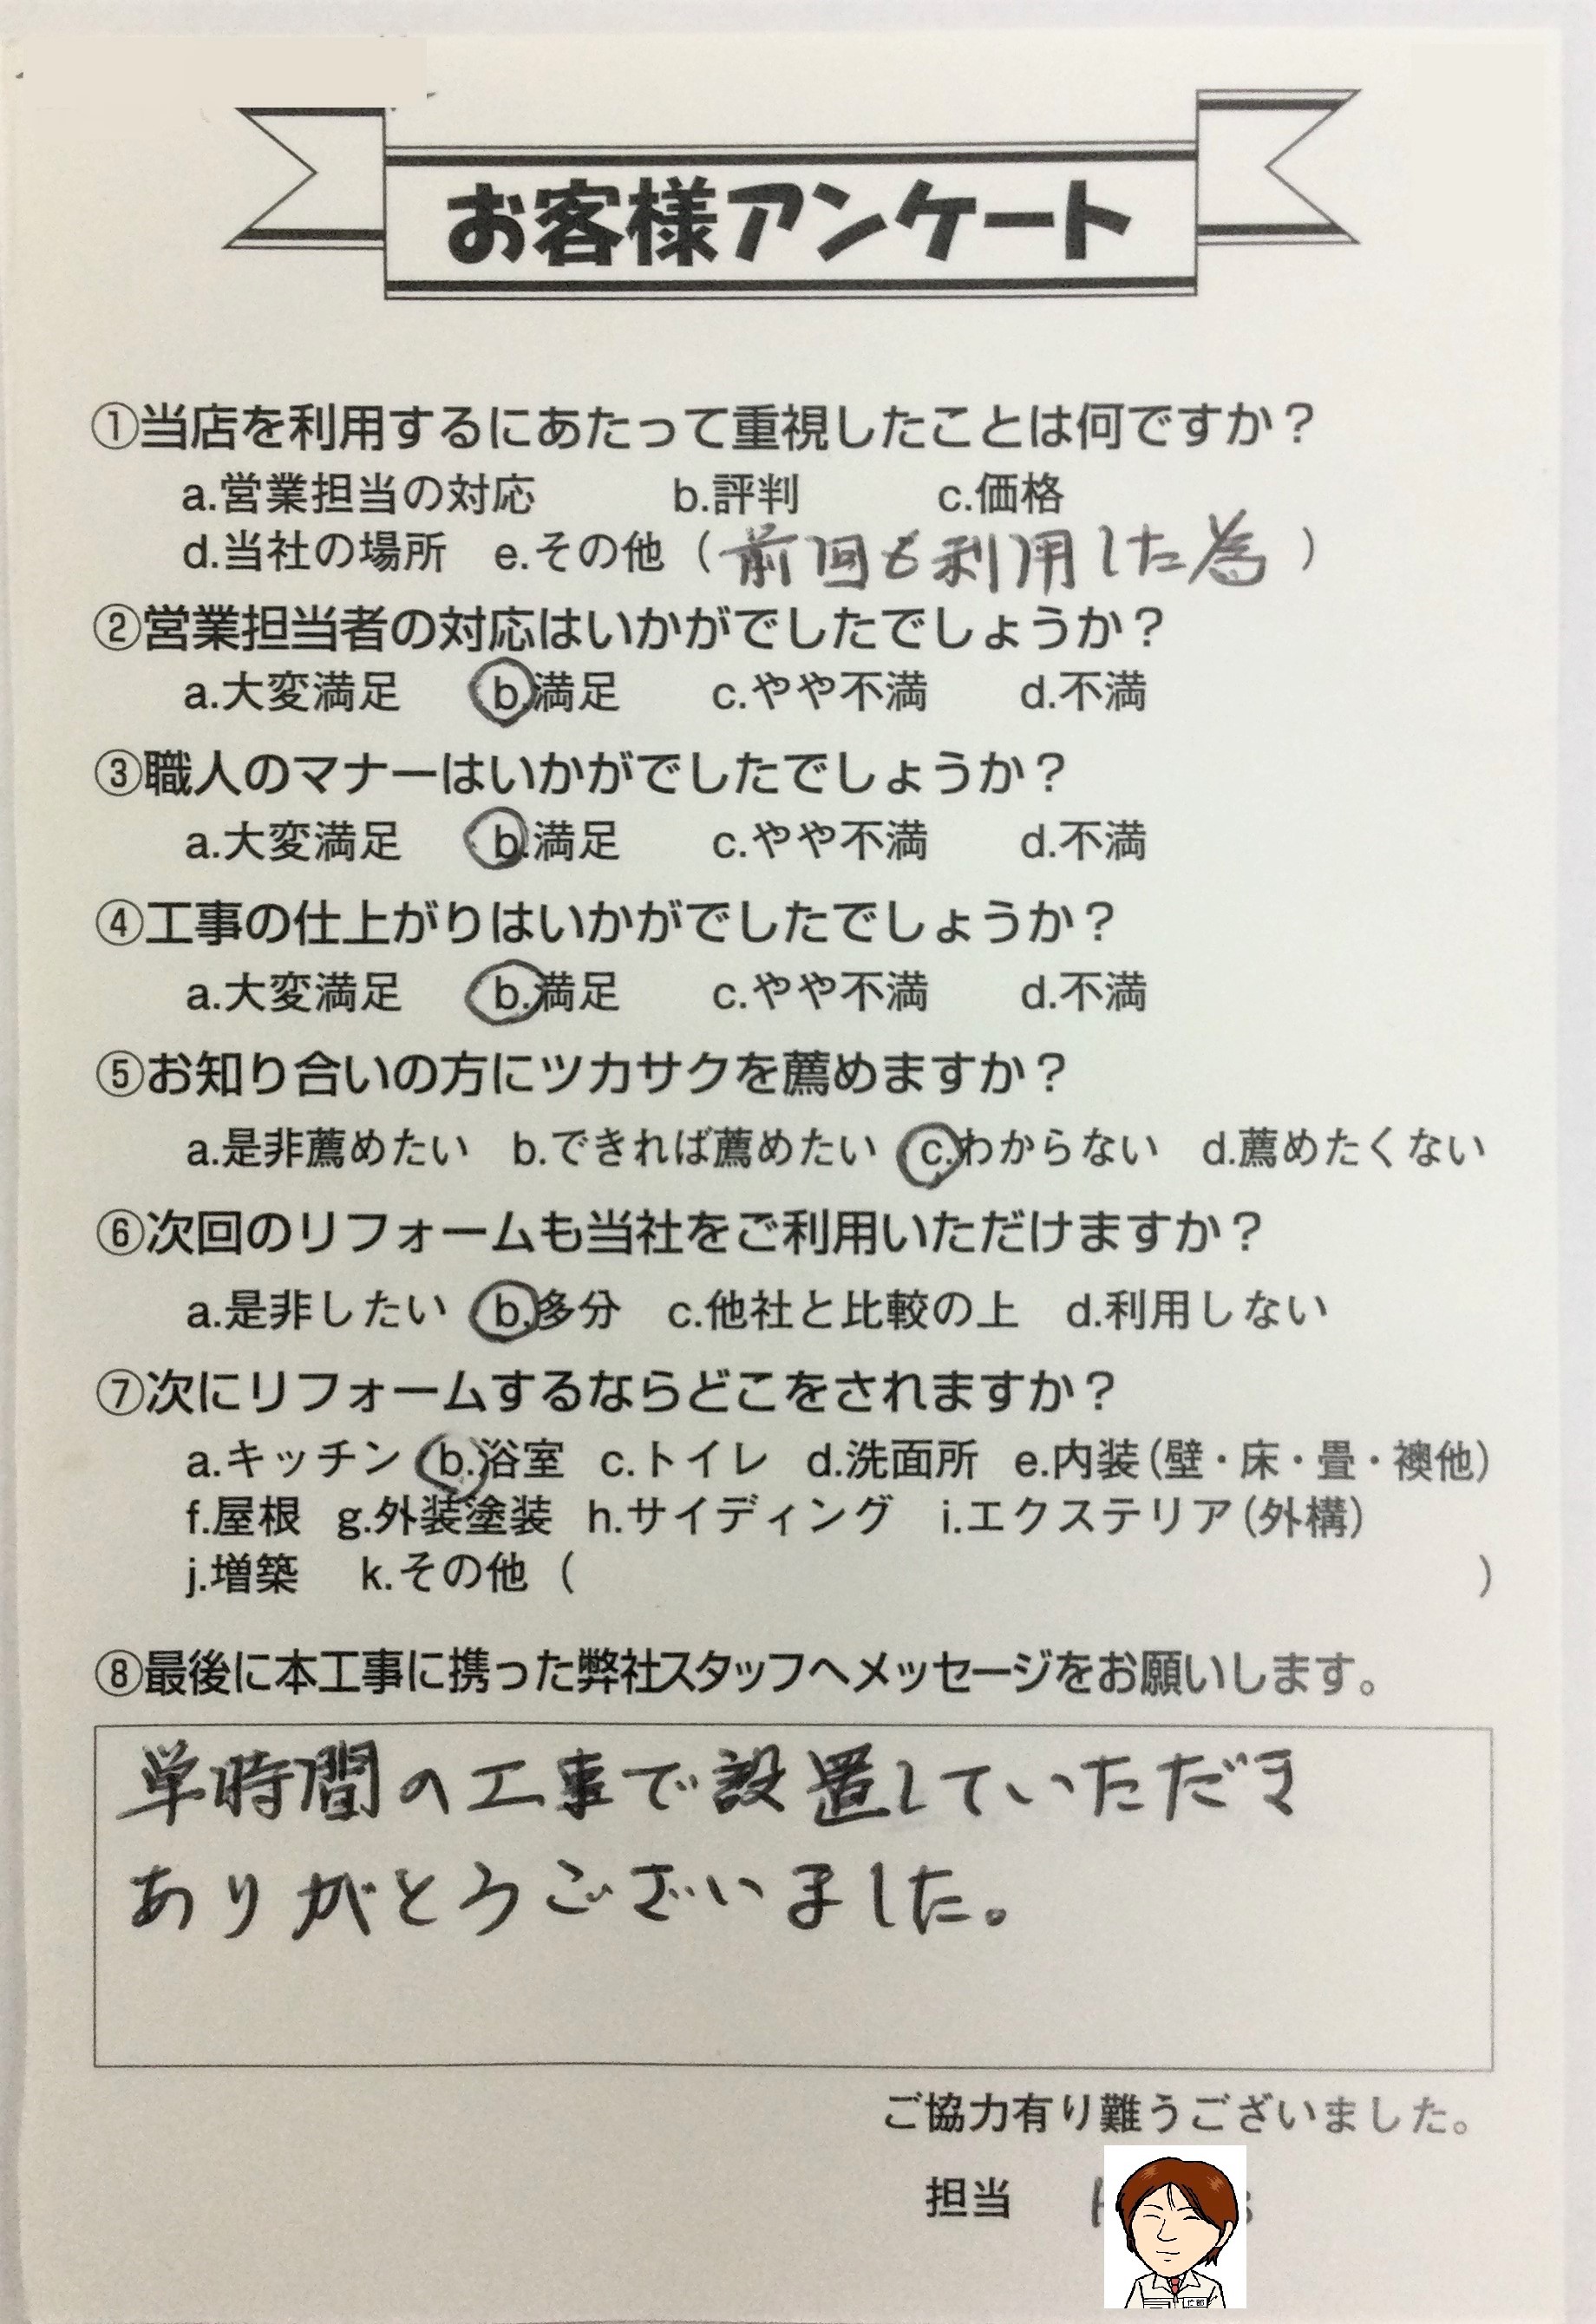 お客様アンケート
①当店を利用するにあたって重視したことは何ですか？
a.営業担当の対応 b.評判 c.価格
d.当社の場所 e.その他（前回も利用した為）
②営業担当者の対応はいかがでしたでしょうか？
a.大変満足 b.満足 c.やや不満 d.不満
③職人のマナーはいかがでしたでしょうか？
a.大変満足 b.満足 c.やや不満 d.不満
④工事の仕上がりはいかがでしたでしょうか？
a.大変満足 b.満足 c.やや不満 d.不満
⑤お知り合いの方にツカサクを薦めますか？
a.是非薦めたい b.できれば薦めたい c.わからない d.薦めたくない
⑥次回のリフォームも当社をご利用いただけますか？
a.是非したい b.多分 c.他社と比較の上 d.利用しない
⑦次にリフォームするならどこをされますか？
a.キッチン b.浴室 c.トイレ d.洗面所 e.内装（壁・床・畳・襖他）
f.屋根 g.外装塗装 h.サイディング i.エクステリア（外構）
j.増築 k.その他（ ）
⑧最後に本工事に携った弊社スタッフへメッセージをお願いします。
単時間の工事で設置していただき
ありがとうございました。
ご協力有り難うございました。
担当